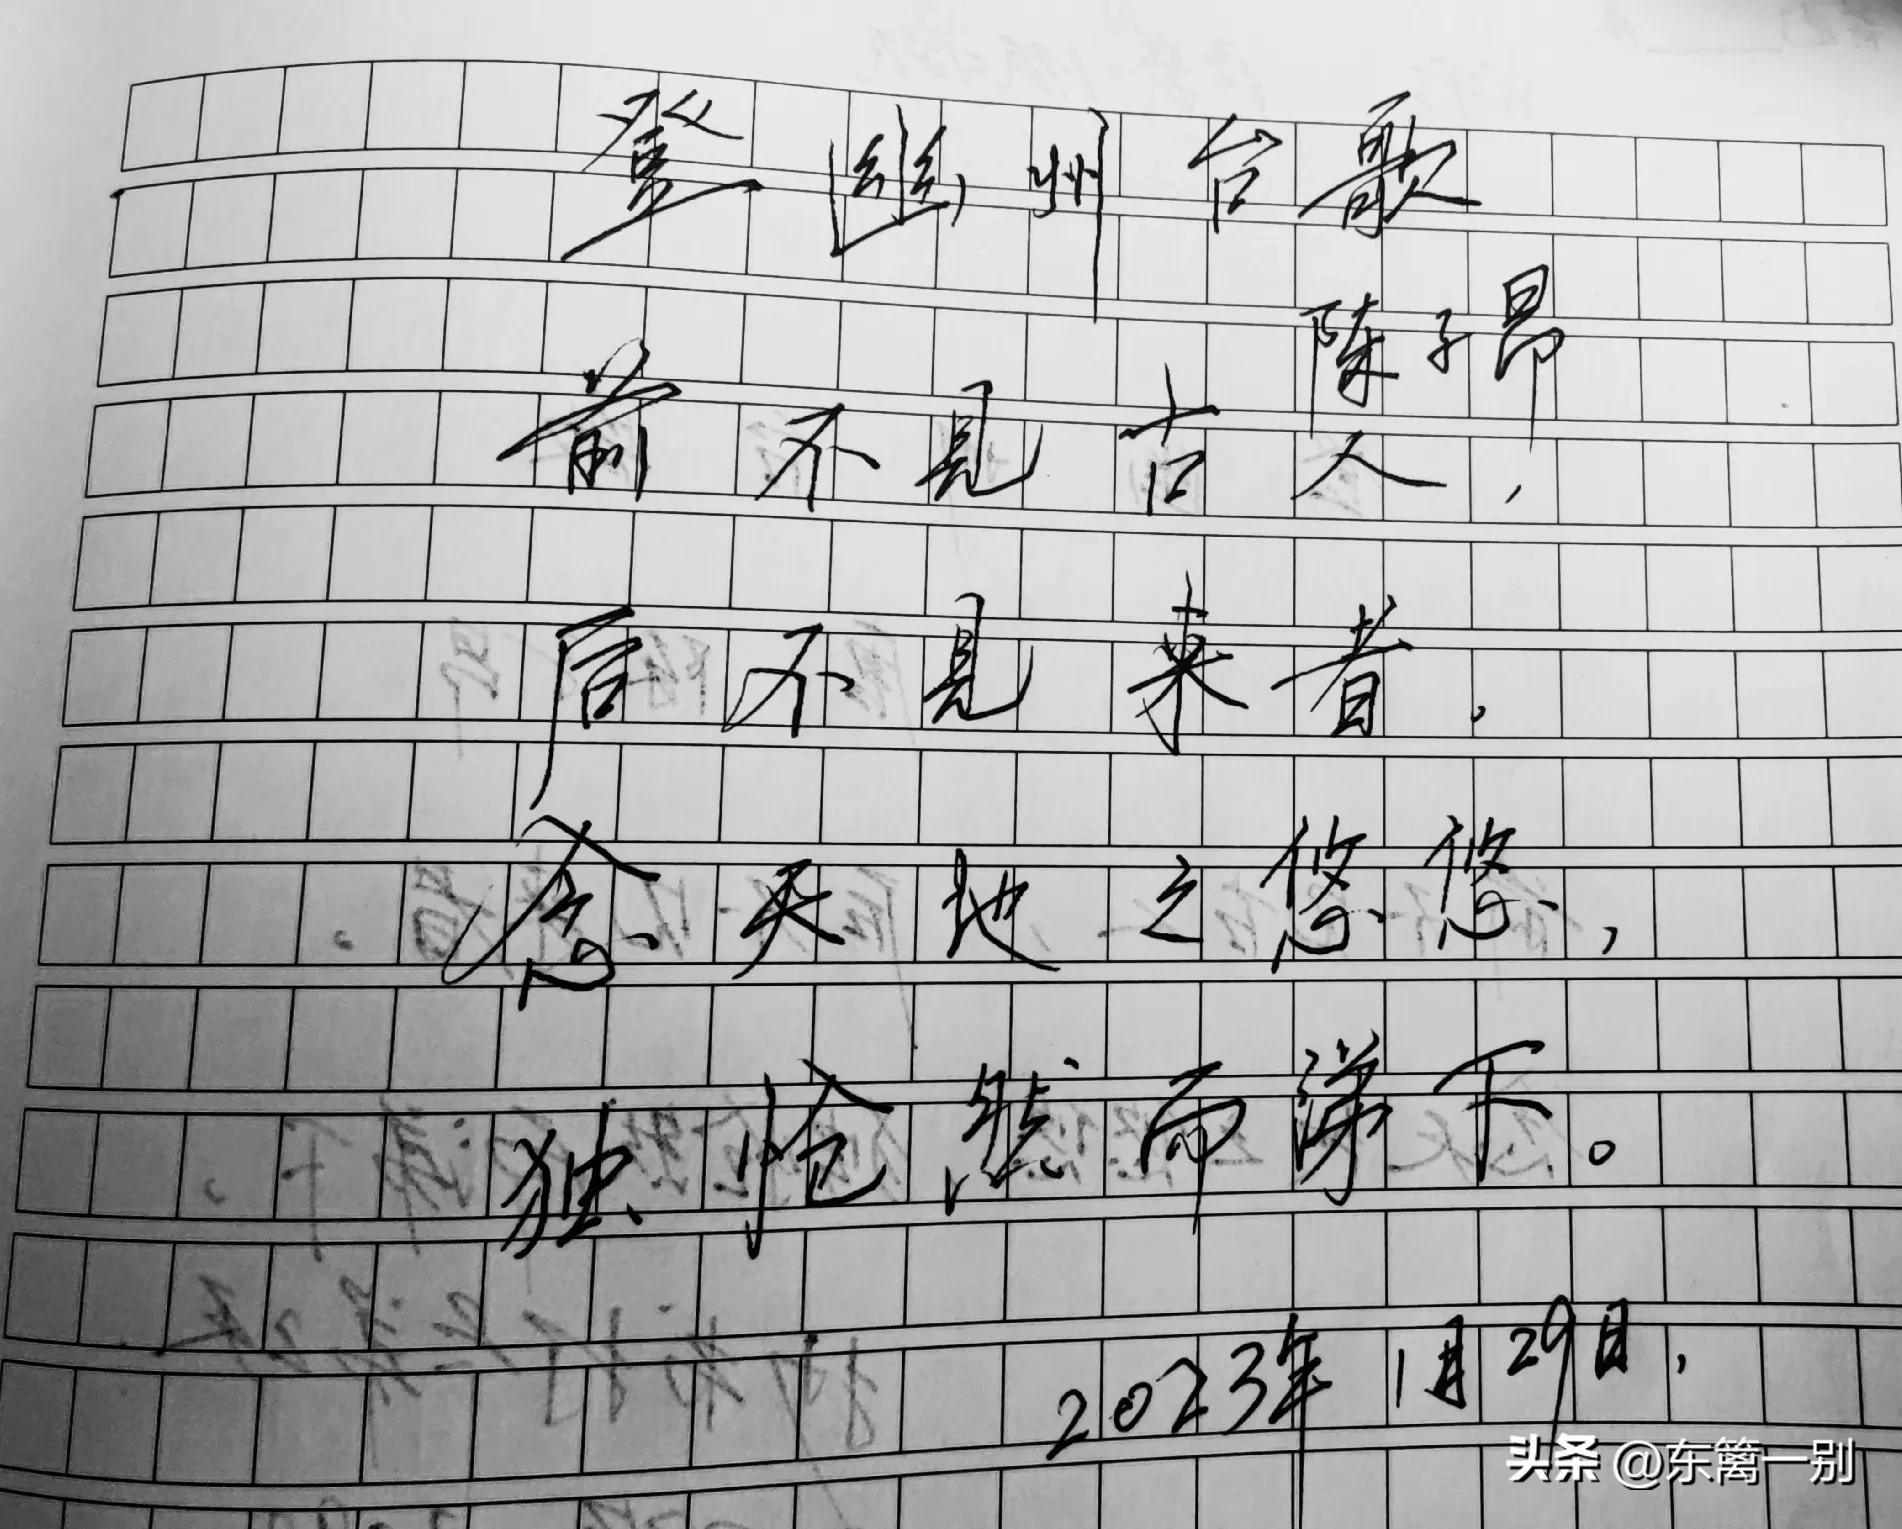 登幽州台歌
陈子昂
前不见古人,
后不见来者。
念天地之悠悠,
独怆然而涕下。
2023年1月29日,
头条 @东篱一别